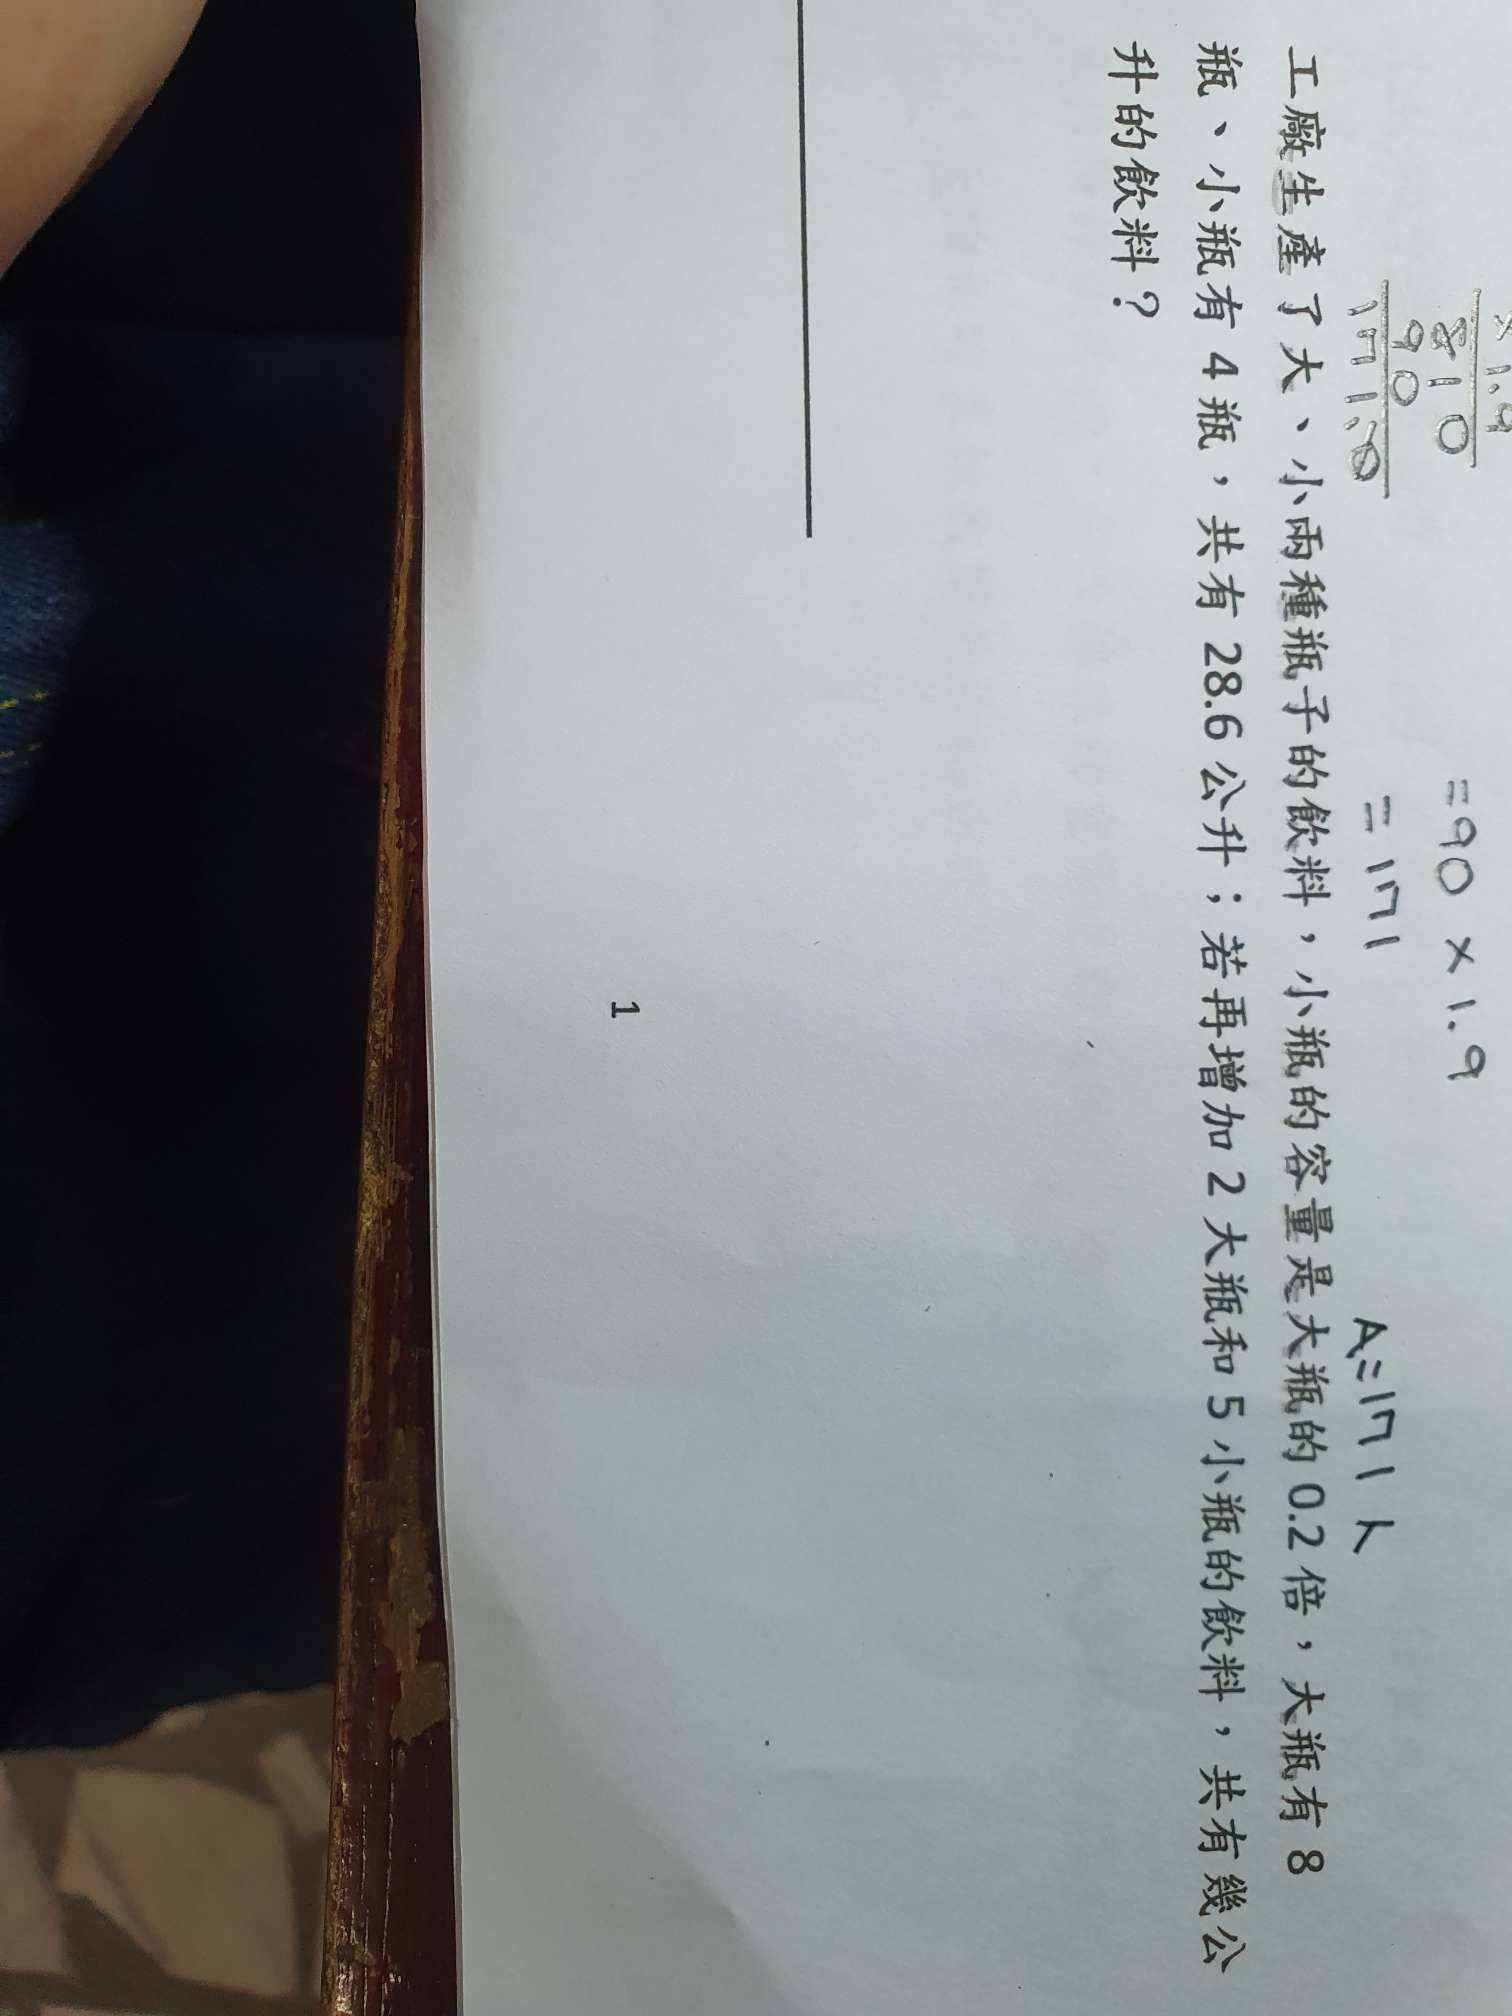 × 1.9
810
90
171.0
=90 × 1.9
= 171
A=171人
工廠生產了大、小兩種瓶子的飲料，小瓶的容量是大瓶的0.2倍，大瓶有8
瓶、小瓶有4瓶，共有28.6公升；若再增加2大瓶和5小瓶的飲料，共有幾公
升的飲料？
1